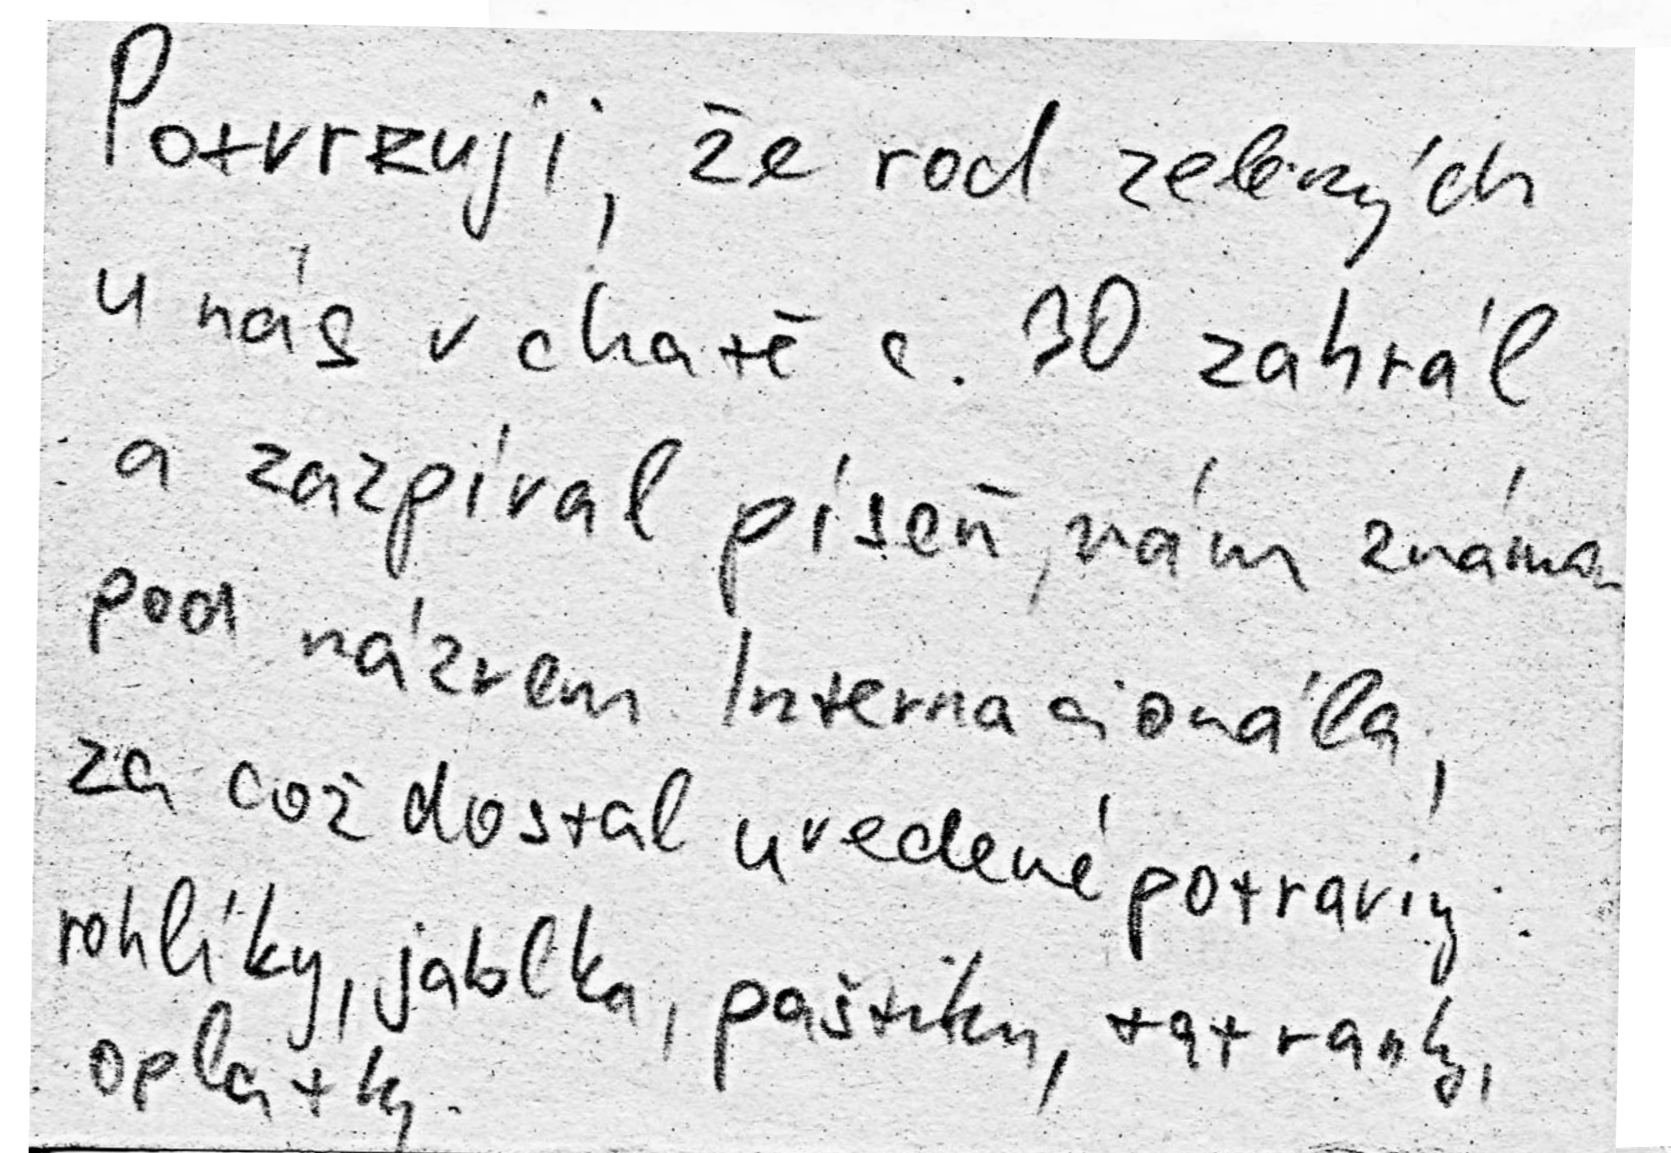 Potvrzuji, že rod zelených
u nás v chatě c. 30 zahrál
a zazpíval píseň, nám známou
pod názvem Internacionála,
za což dostal uvedené potraviny:
rohlíky, jablka, paštiku, tatranky,
oplatky.